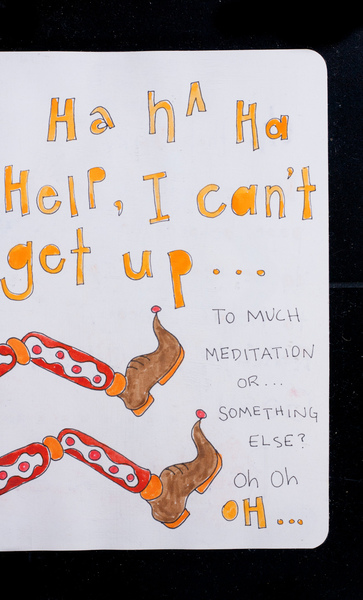 Ha a h^ Ha
Help, I can't
get up...
TO MUCH
MEDITATION
OR...
SOMETHING
ELSE?
Oh Oh
OH...